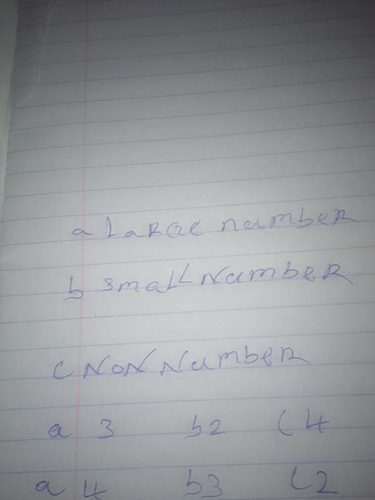 a LaRGe number
b small NumbeR
c NoN NumbeR
a 3 b2 c4
a 4 b3 c2